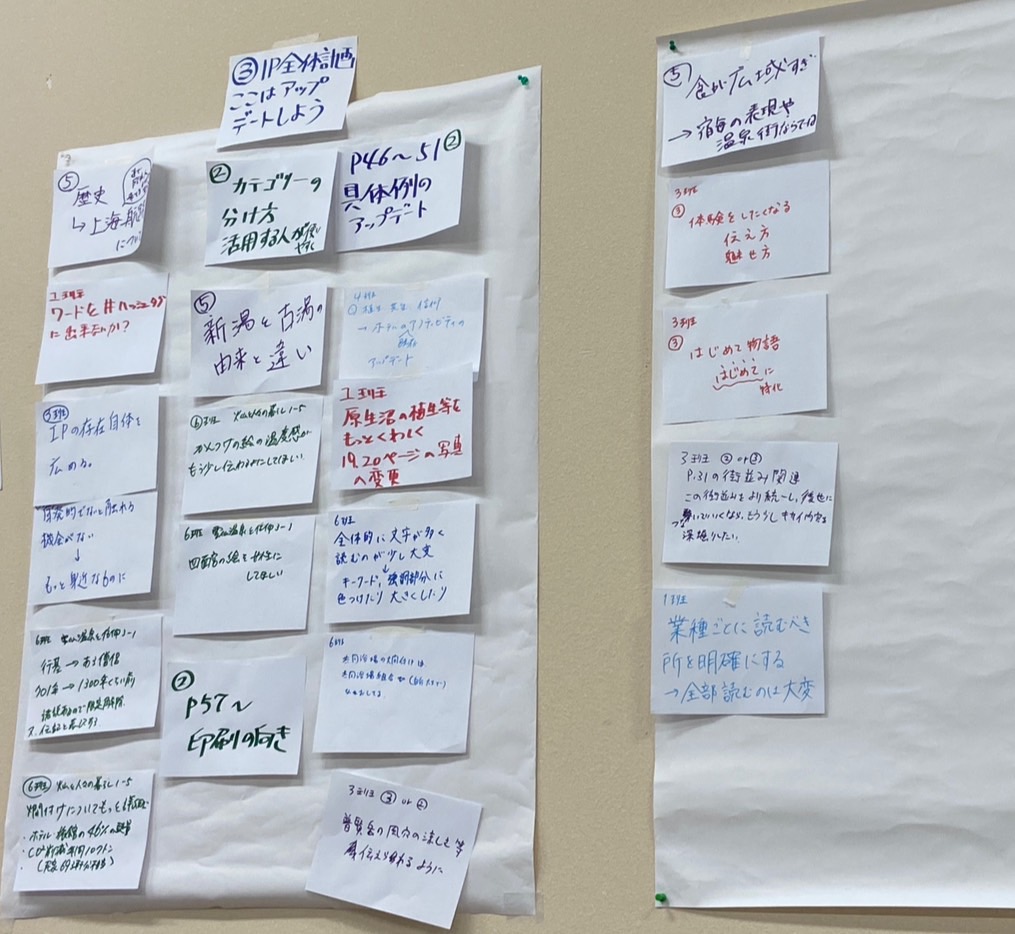 ③IP全体計画
ここはアップ
デートしよう
⑤
歴史
↳上海航路
について
1班
ワードを#ハッシュタグ
に出来ないか?
3班
IPの存在自体を
広める。
自発的でないと触れる
機会がない
↓
もっと身近なものに
6班 雲仙温泉と信仰 2-1
行基→ある僧侶
701年→1300年くらい前
6班 火山と人々の暮らし 1-5
燗付けについてもっと
・ホテル・旅館の46%の
・CO₂削減 年間 トン
②
カテゴリーの
分け方
活用する人が使い
やすく
⑤
新湯と古湯の
由来と違い
6班 火山と人々の暮らし 1-5
かんつけの絵の温度感が
もう少し伝わるようにしてほしい
6班 雲仙温泉と信仰 2-1
四面宮の絵を女性に
してほしい
②
P57~
印刷の向き
P46~51②
具体例の
アップデート
4班
→ホテルのアクティビティの
アップデート
1班
原生沼の植生等を
もっとくわしく
19.20ページの写真
へ変更
6班
全体的に文字が多く
読むのが少し大変
↓
キーワード、強調部分に
色つけたり大きくしたり
6班
3班 ③ or ②
普賢岳の風穴の涼しさ等
伝え られるように
⑤
食が広域すぎ
→宿毎の表現や
温泉街ならでは
3班
③ 体験をしたくなる
伝え方
魅せ方
3班
③ はじめて物語
はじめてに
特化
3班 ② or ③
P.31の街並み関連
この街並みをより統一し、後世に
深堀りしたい。
1班
業種ごとに読むべき
所を明確にする
→全部読むのは大変